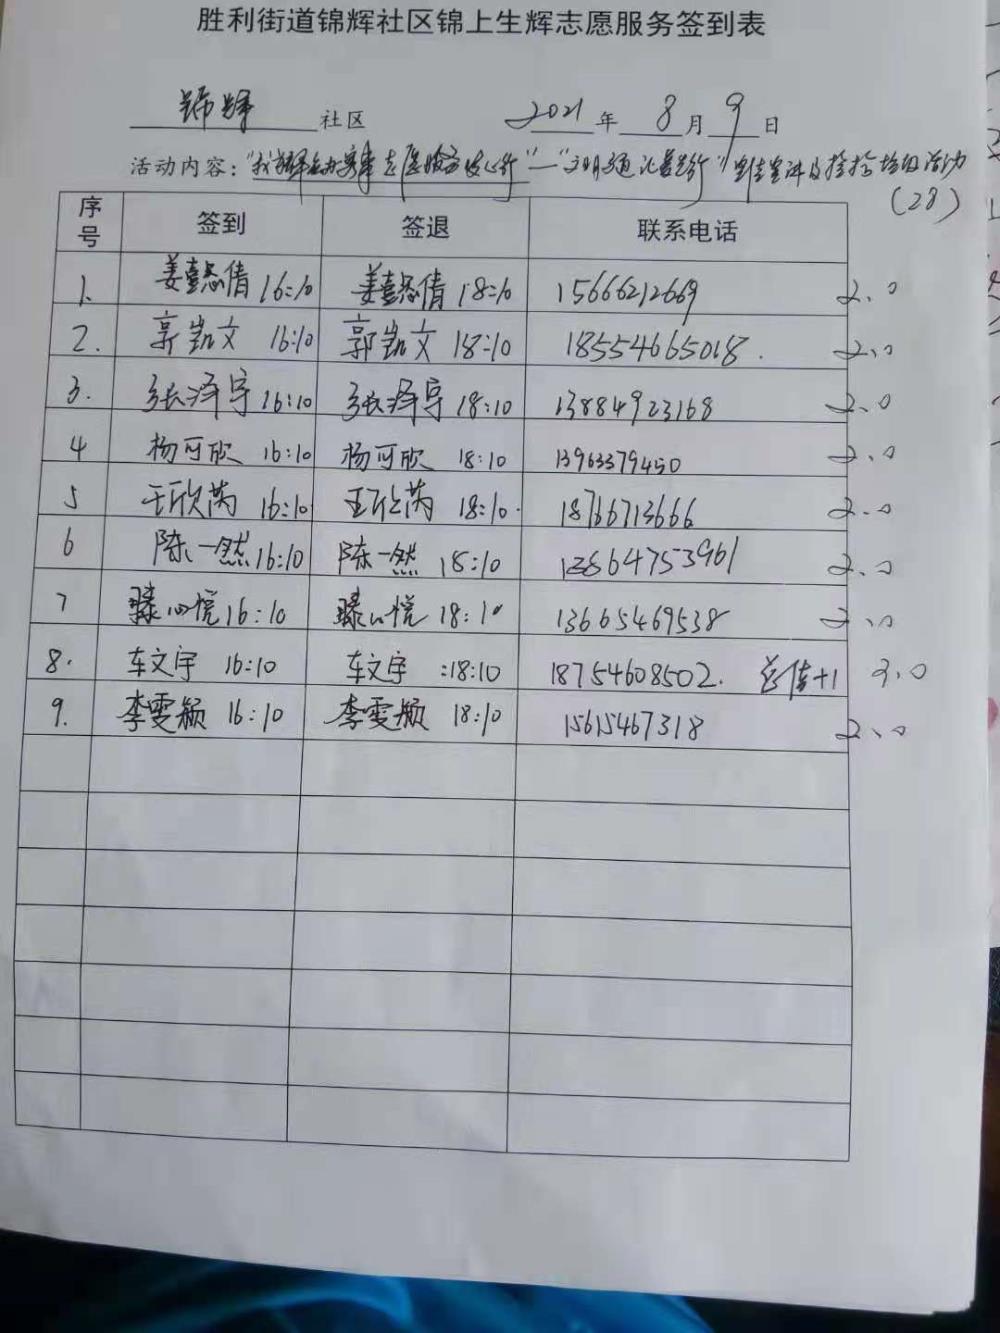 胜利街道锦辉社区锦上生辉志愿服务签到表
锦辉 社区 2021 年 8 月 9 日
活动内容:"我为群众办实事 志愿服务暖心行"—"文明交通 礼善先行" 宣讲及捡拾垃圾活动
(28)
序号 签到 签退 联系电话
1. 姜懿倩 16:10 姜懿倩 18:10 15666212669 2.0
2. 郭凯文 16:10 郭凯文 18:10 18554665018. 2.0
3. 张泽宇 16:10 张泽宇 18:10 13884923168 2.0
4 杨可欣 16:10 杨可欣 18:10 13963379450 2.0
5 王欣芮 16:10 王欣芮 18:10. 18766713666 2.0
6 陈一然 16:10 陈一然 18:10 13864753961 2.0
7 滕心悦 16:10 滕心悦 18:10 13665469538 2.0
8. 车文宇 16:10 车文宇 :18:10 18754608502. +1 3.0
9. 李雯颖 16:10 李雯颖 18:10 15615467318 2.0